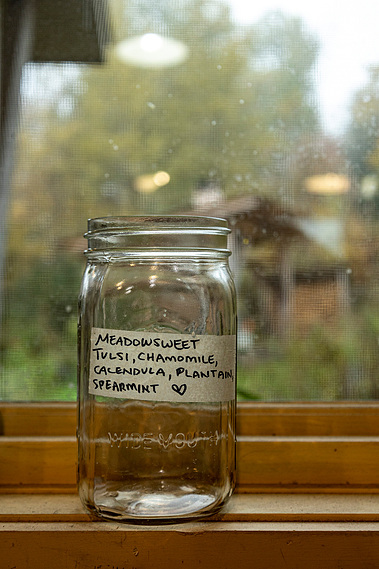 MEADOWSWEET
TULSI, CHAMOMILE,
CALENDULA, PLANTAIN,
SPEARMINT ♡
WIDE MOUTH